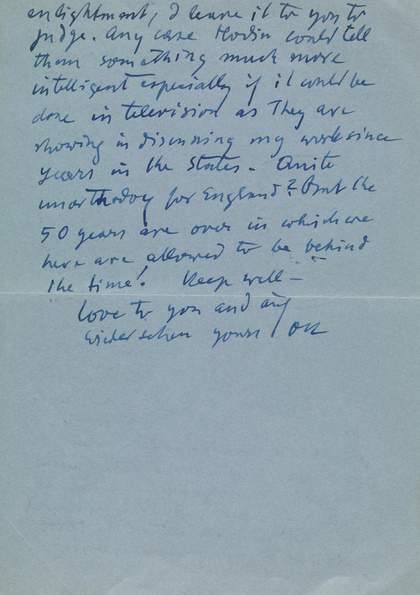 enlightment, I leave it to you to
judge. Any case Hodin could tell
them something much more
intelligent especially if it could be
done in television as They are
showing in discussing my work since
years in the States. Quite
unorthodox for England? But the
50 years are over in which we
here are allowed to be behind
the time! Keep well –
Love to you and auf
wiedersehen yours OK